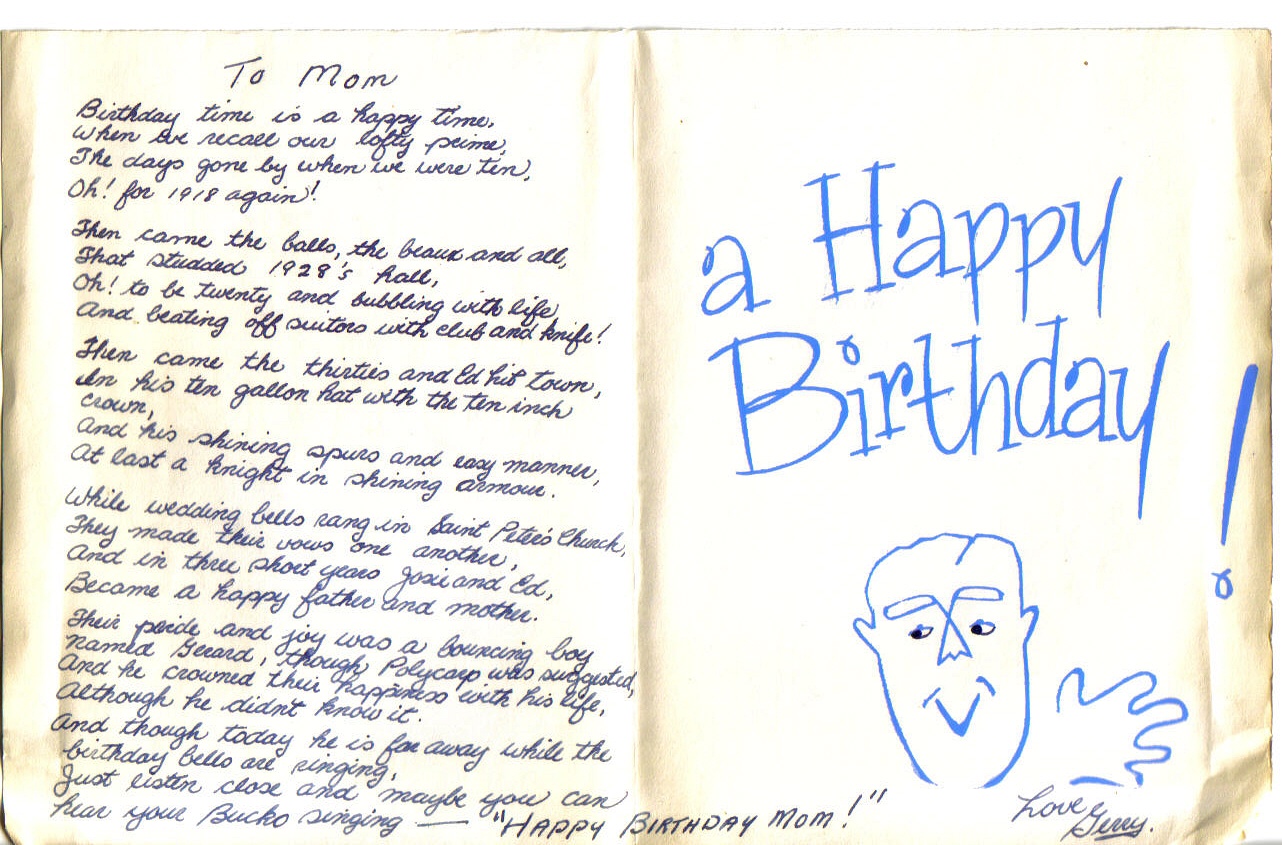 To Mom
Birthday time is a happy time,
When we recall our lofty prime,
The days gone by when we were ten,
Oh! for 1918 again!
Then came the balls, the beaux and all,
That studded 1928's hall,
Oh! to be twenty and bubbling with life
And beating off suitors with club and knife!
Then came the thirties and Ed hit town,
In his ten gallon hat with the ten inch
crown,
And his shining spurs and easy manner,
At last a knight in shining armour.
While wedding bells rang in Saint Peter's Church,
They made their vows one another,
And in three short years Josie and Ed,
Became a happy father and mother.
Their pride and joy was a bouncing boy
named Gerard, though Polycarp was suggested,
And he crowned their happiness with his life,
Although he didn't know it.
And though today he is far away while the
birthday bells are ringing,
Just listen close and maybe you can
hear your Bucko singing — "HAPPY BIRTHDAY MOM!"
a Happy
Birthday!
Love
Gerry.